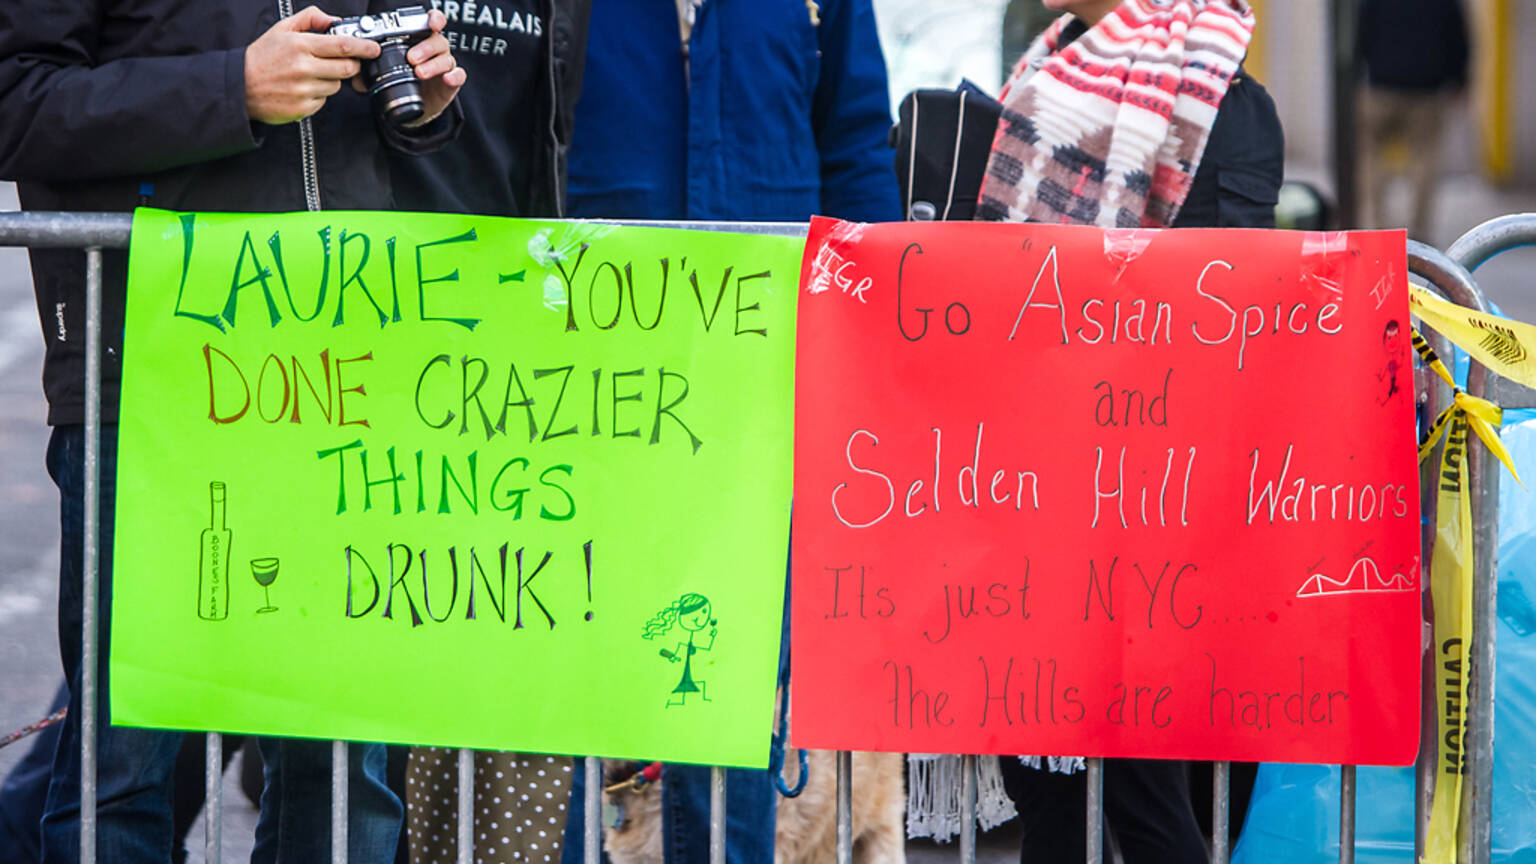 TRÉALAIS
ELIER
Superdry
LAURIE - YOU'VE
DONE CRAZIER
THINGS
DRUNK!
BOONES FARM
ITGR
Go "Asian Spice"
and
Selden Hill Warriors
It's just NYC.....
the Hills are harder
CAUTION